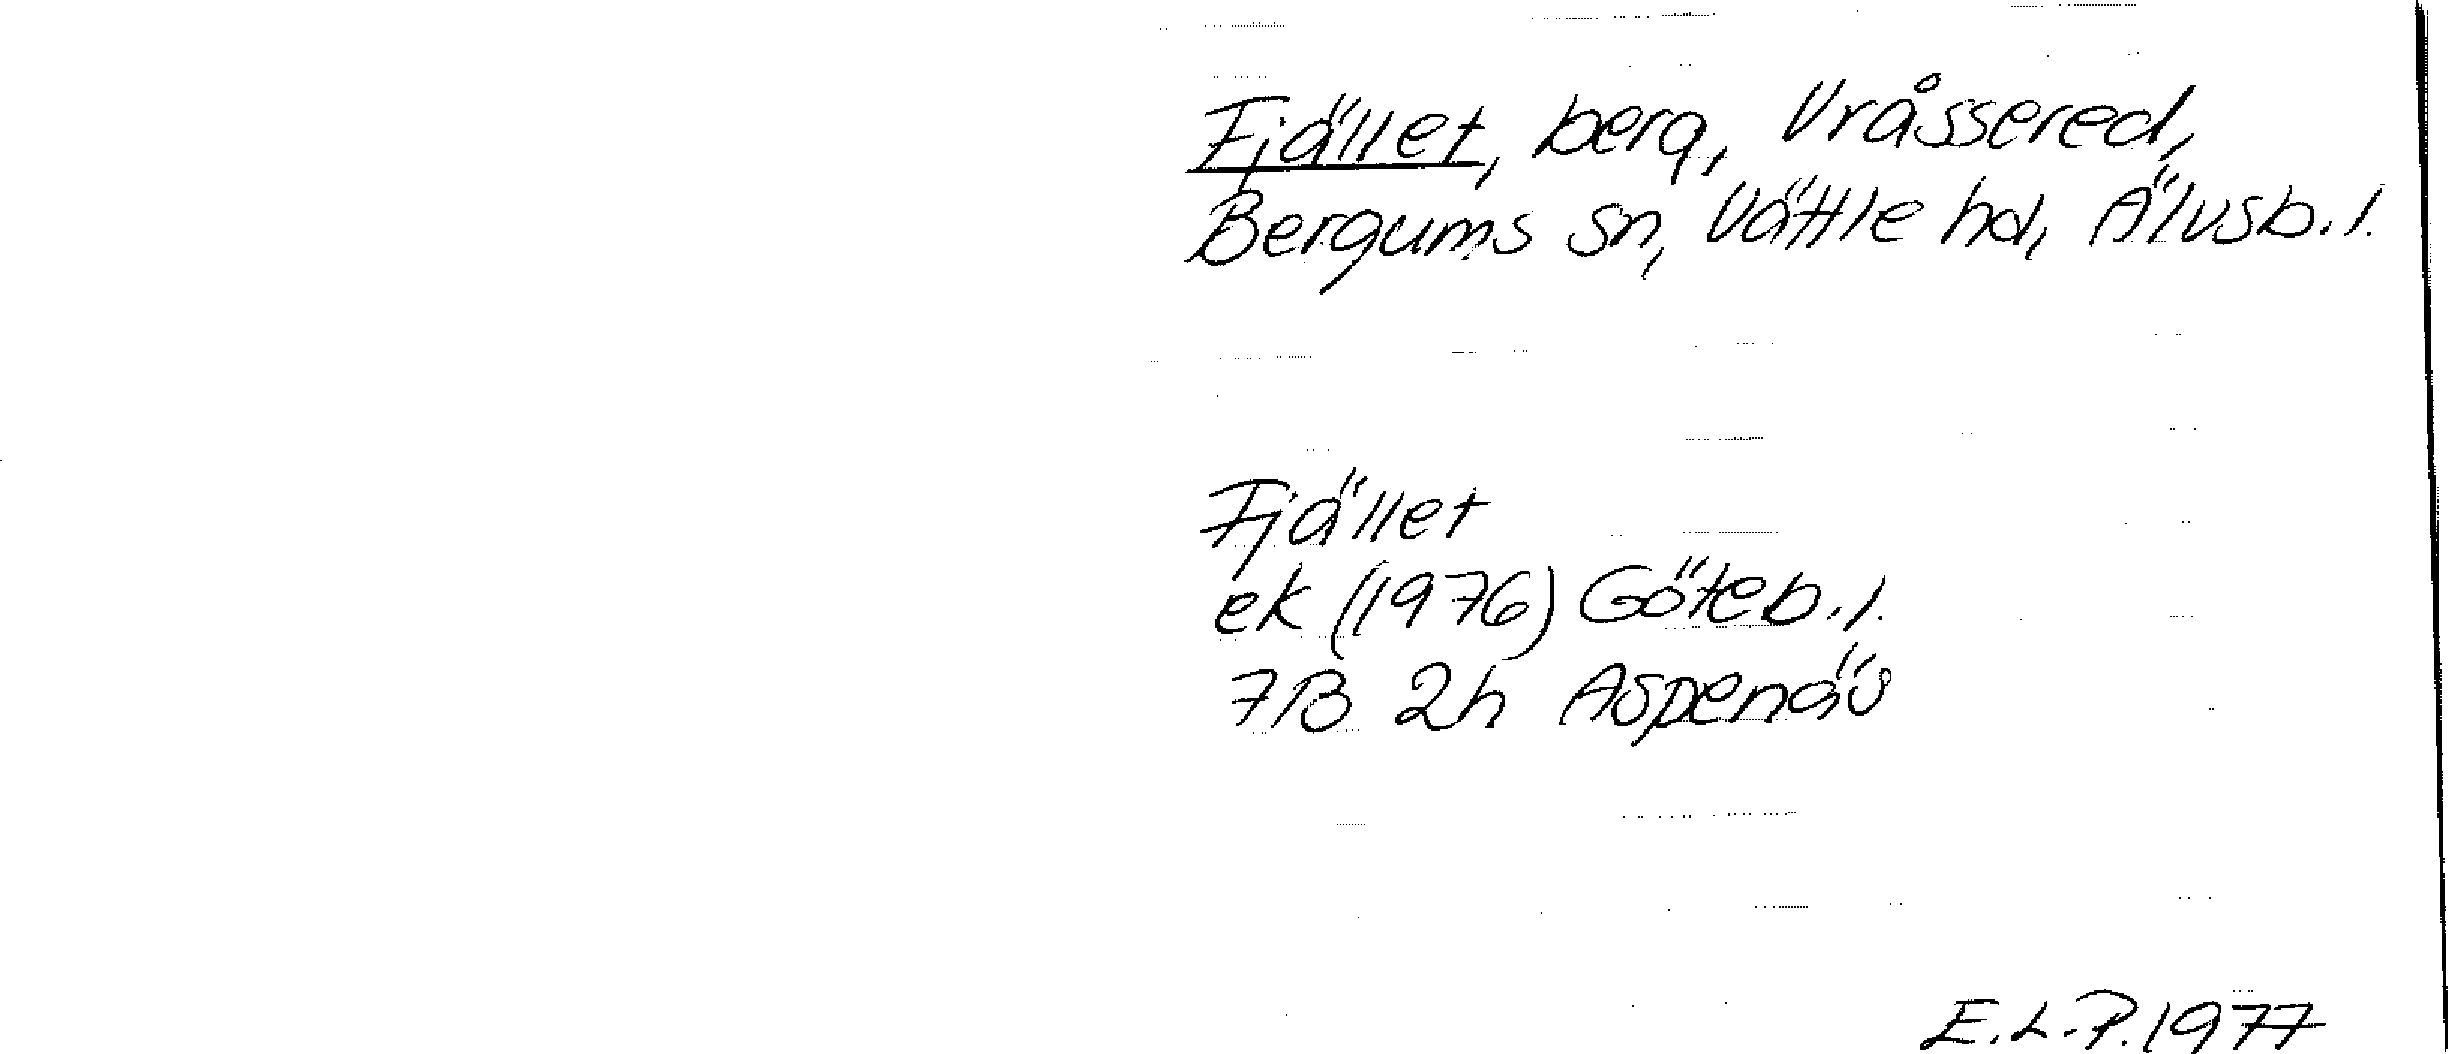 Fjället, berg, Vråssered,
Bergums sn, Vättle hd, Älvsb. l.
Fjället
ek (1976) Göteb. l.
7B 2h Aspenäs
E.L-P. 1977